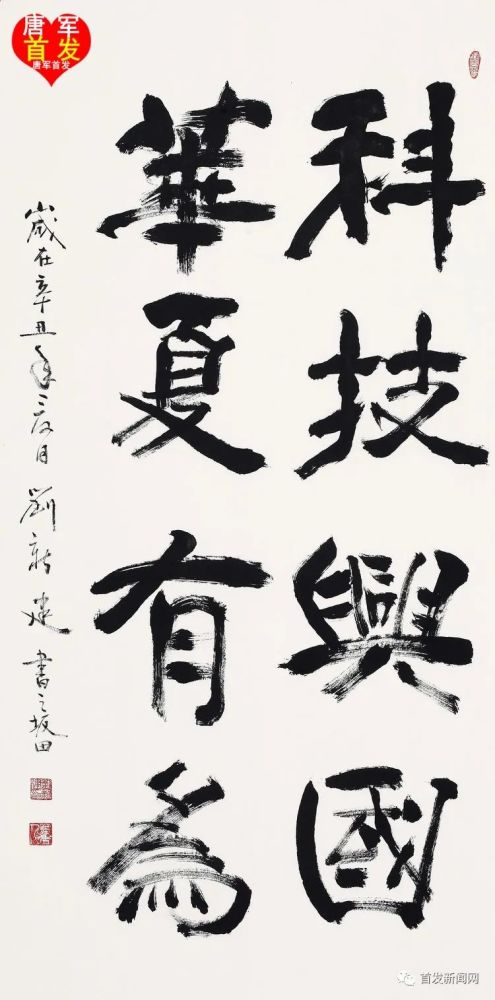 唐军
首发
唐军首发
科技興國
華夏有為
歲在辛丑年三月 劉新建 書之坂田
首发新闻网